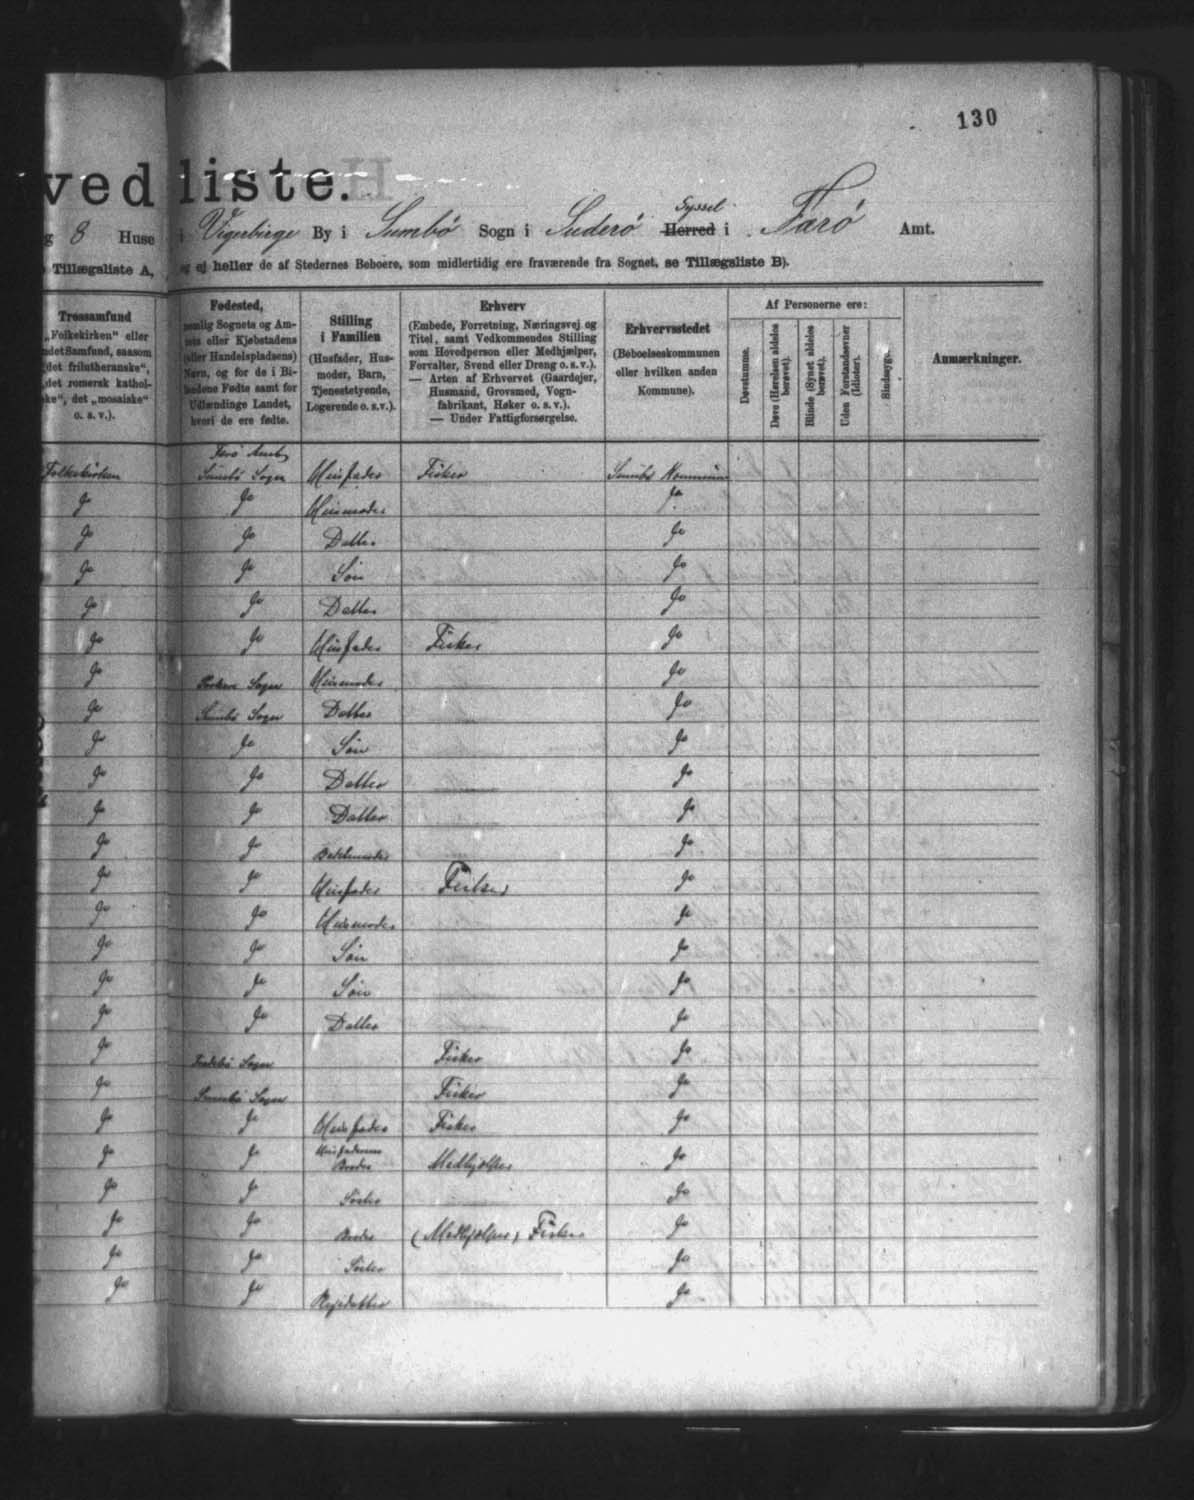 130
ved liste.
g 8 Huse i Vigerbirge By i Sumbø Sogn i Suderø Syssel Herred i Færø Amt.
Tillægsliste A, og ej heller de af Stedernes Beboere, som midlertidig ere fraværende fra Sognet, se Tillægsliste B).
Trossamfund
„Folkekirken“ eller
andet Samfund, saasom
„det frilutheranske“,
„det romersk kathol-
ske“, det „mosaiske“
o. s. v.).
Fødested,
nemlig Sognets og Am-
tets eller Kjøbstadens
(eller Handelspladsens)
Navn, og for de i Bi-
landene Fødte samt for
Udlændinge Landet,
hvori de ere fødte.
Stilling
i Familien
(Husfader, Hus-
moder, Barn,
Tjenestetyende,
Logerende o. s. v.).
Erhverv
(Embede, Forretning, Næringsvej og
Titel, samt Vedkommendes Stilling
som Hovedperson eller Medhjælper,
Forvalter, Svend eller Dreng o. s. v.).
— Arten af Erhvervet (Gaardejer,
Husmand, Grovsmed, Vogn-
fabrikant, Høker o. s. v.).
— Under Fattigforsørgelse.
Erhvervsstedet
(Beboelseskommunen
eller hvilken anden
Kommune).
Af Personerne ere:
Døvstumme.
Døve (Hørelsen aldeles
berøvet).
Blinde (Synet aldeles
berøvet).
Uden Forstandsevner
(Idioter).
Sindssyge.
Anmærkninger.
Færø Amt
Folkekirken Sumbø Sogn Husfader Fisker Sumbø Kommune
Do Do Husmoder Do
Do Do Datter Do
Do Do Søn Do
Do Do Datter Do
Do Do Husfader Fisker Do
Do Porkere Sogn Husmoder Do
Do Sumbø Sogn Datter Do
Do Do Søn Do
Do Do Datter Do
Do Do Datter Do
Do Do Do
Do Do Husfader Fisker Do
Do Do Husmoder Do
Do Do Søn Do
Do Do Søn Do
Do Do Datter Do
Do Sogn Fisker Do
Do Sumbø Sogn Fisker Do
Do Do Husfader Fisker Do
Do Do Husfaderens Broder Medhjælper Do
Do Do Søster Do
Do Do Broder (Medhjælper) Fisker Do
Do Do Søster Do
Do Do Plejedatter Do